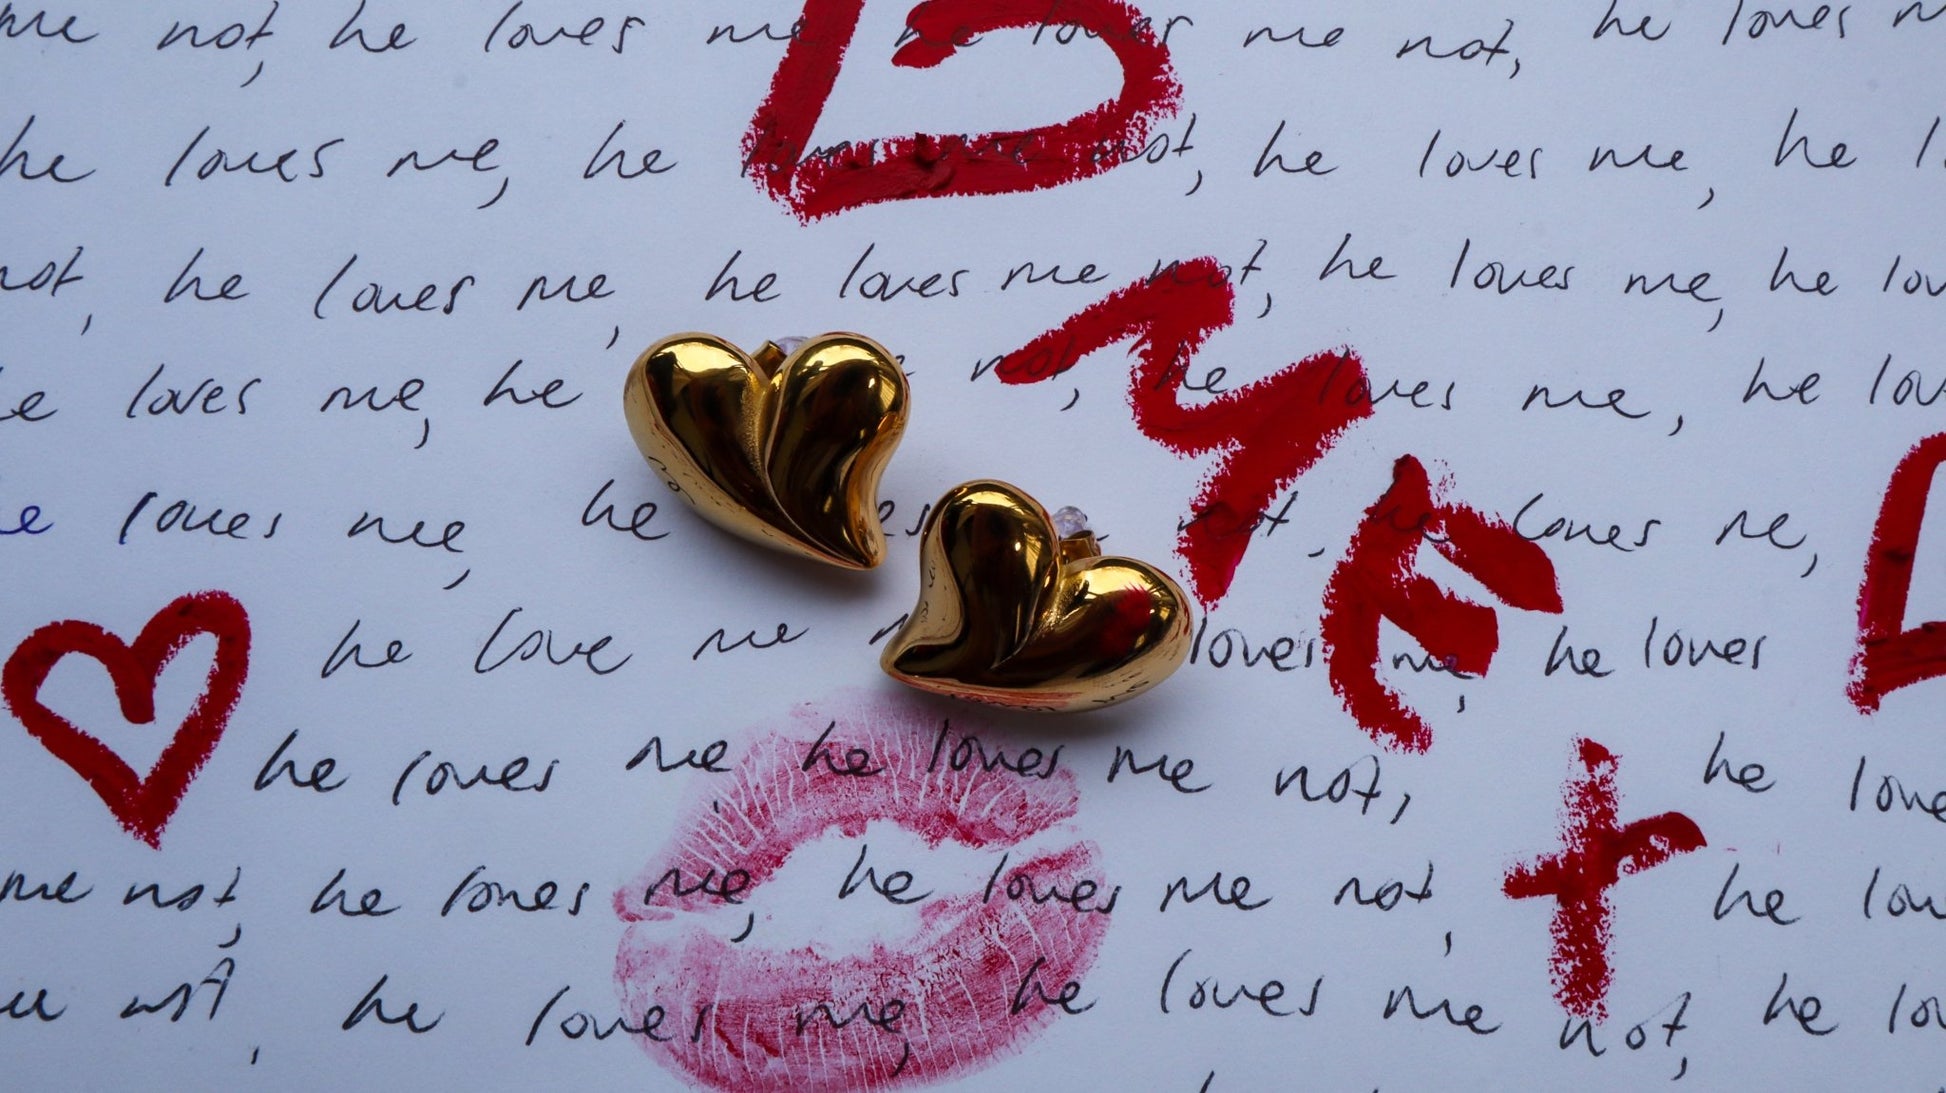 me not, he loves me he loves me not, he loves
he loves me, he loves me not, he loves me, he
not, he loves me, he loves me not, he loves me, he
he loves me, he not, he loves me, he
loves me, he not, he loves me,
he love me loves me, he loves
he loves me, he loves me not, he
me not, he loves me, he loves me not, he
not, he loves me, he loves me not, he
ME
+